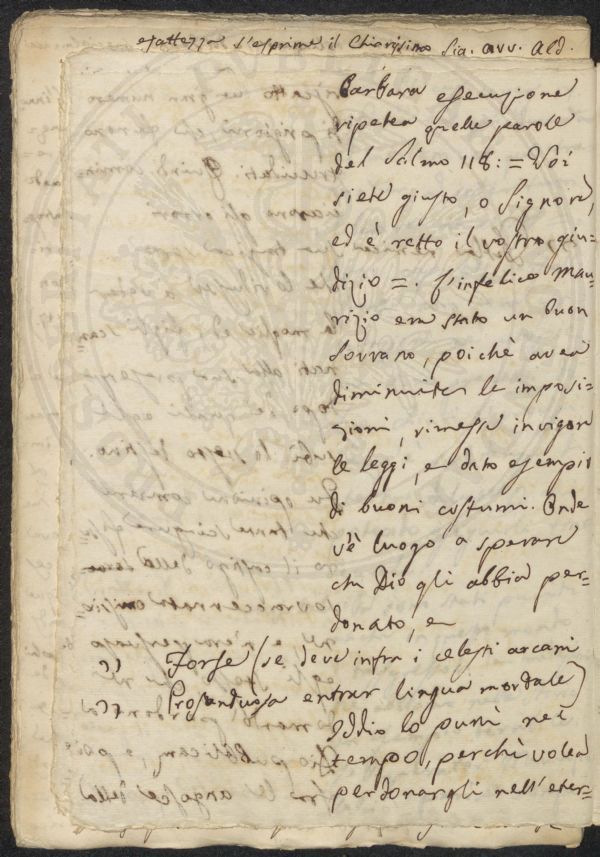 esattezza s'esprime il Chiarissimo Sig. avv. Ald.
barbara esecuzione
ripetea quelle parole
del Salmo 118: = Voi
siete giusto, o Signore,
ed è retto il vostro giu=
dizio =. L'infelice Mau=
rizio era stato un buon
Sovrano, poichè avea
diminuite le imposi=
zioni, rimesse in vigore
le leggi, e dato esempio
di buoni costumi. Onde
v'è luogo a sperare
che Dio gli abbia per=
donato, e
" Forse (se deve infra i celesti arcani
" Prosontuosa entrar lingua mortale)
Iddio lo punì nel
tempo, perchè volea
perdonargli nell'eter=